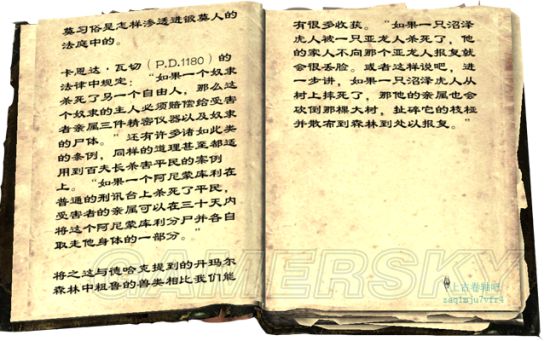 莫习俗是怎样渗透进锻莫人的
法庭中的。
卡恩达·瓦切（P.D.1180）的
法律中规定：“如果一个奴隶
杀死了另一个自由人，那么这
个奴隶的主人必须赔偿给受害
者亲属三件精密仪器以及奴隶
的尸体。”还有许多诸如此类
的条例，同样的道理甚至都适
用到百夫长杀害平民的案例
上。“如果一个阿尼蒙库利在
普通的刑讯台上杀死了平民，
受害者的亲属可以在三十天内
将这个阿尼蒙库利分尸并各自
取走他身体的一部分。”
将之这与德哈克提到的丹玛尔
森林中粗鲁的兽类相比我们能
有很多收获。“如果一只沼泽
虎人被一只亚龙人杀死了，他
的家人不向那个亚龙人报复就
会很丢脸。或者这样说吧，进
一步讲，如果一只沼泽虎人从
树上摔死了，那他的亲属也会
砍倒那棵大树，扯碎它的枝桠
并散布到森林到处以报复。”
GAMERSKY
上古卷轴吧
zaqimju7vfr4